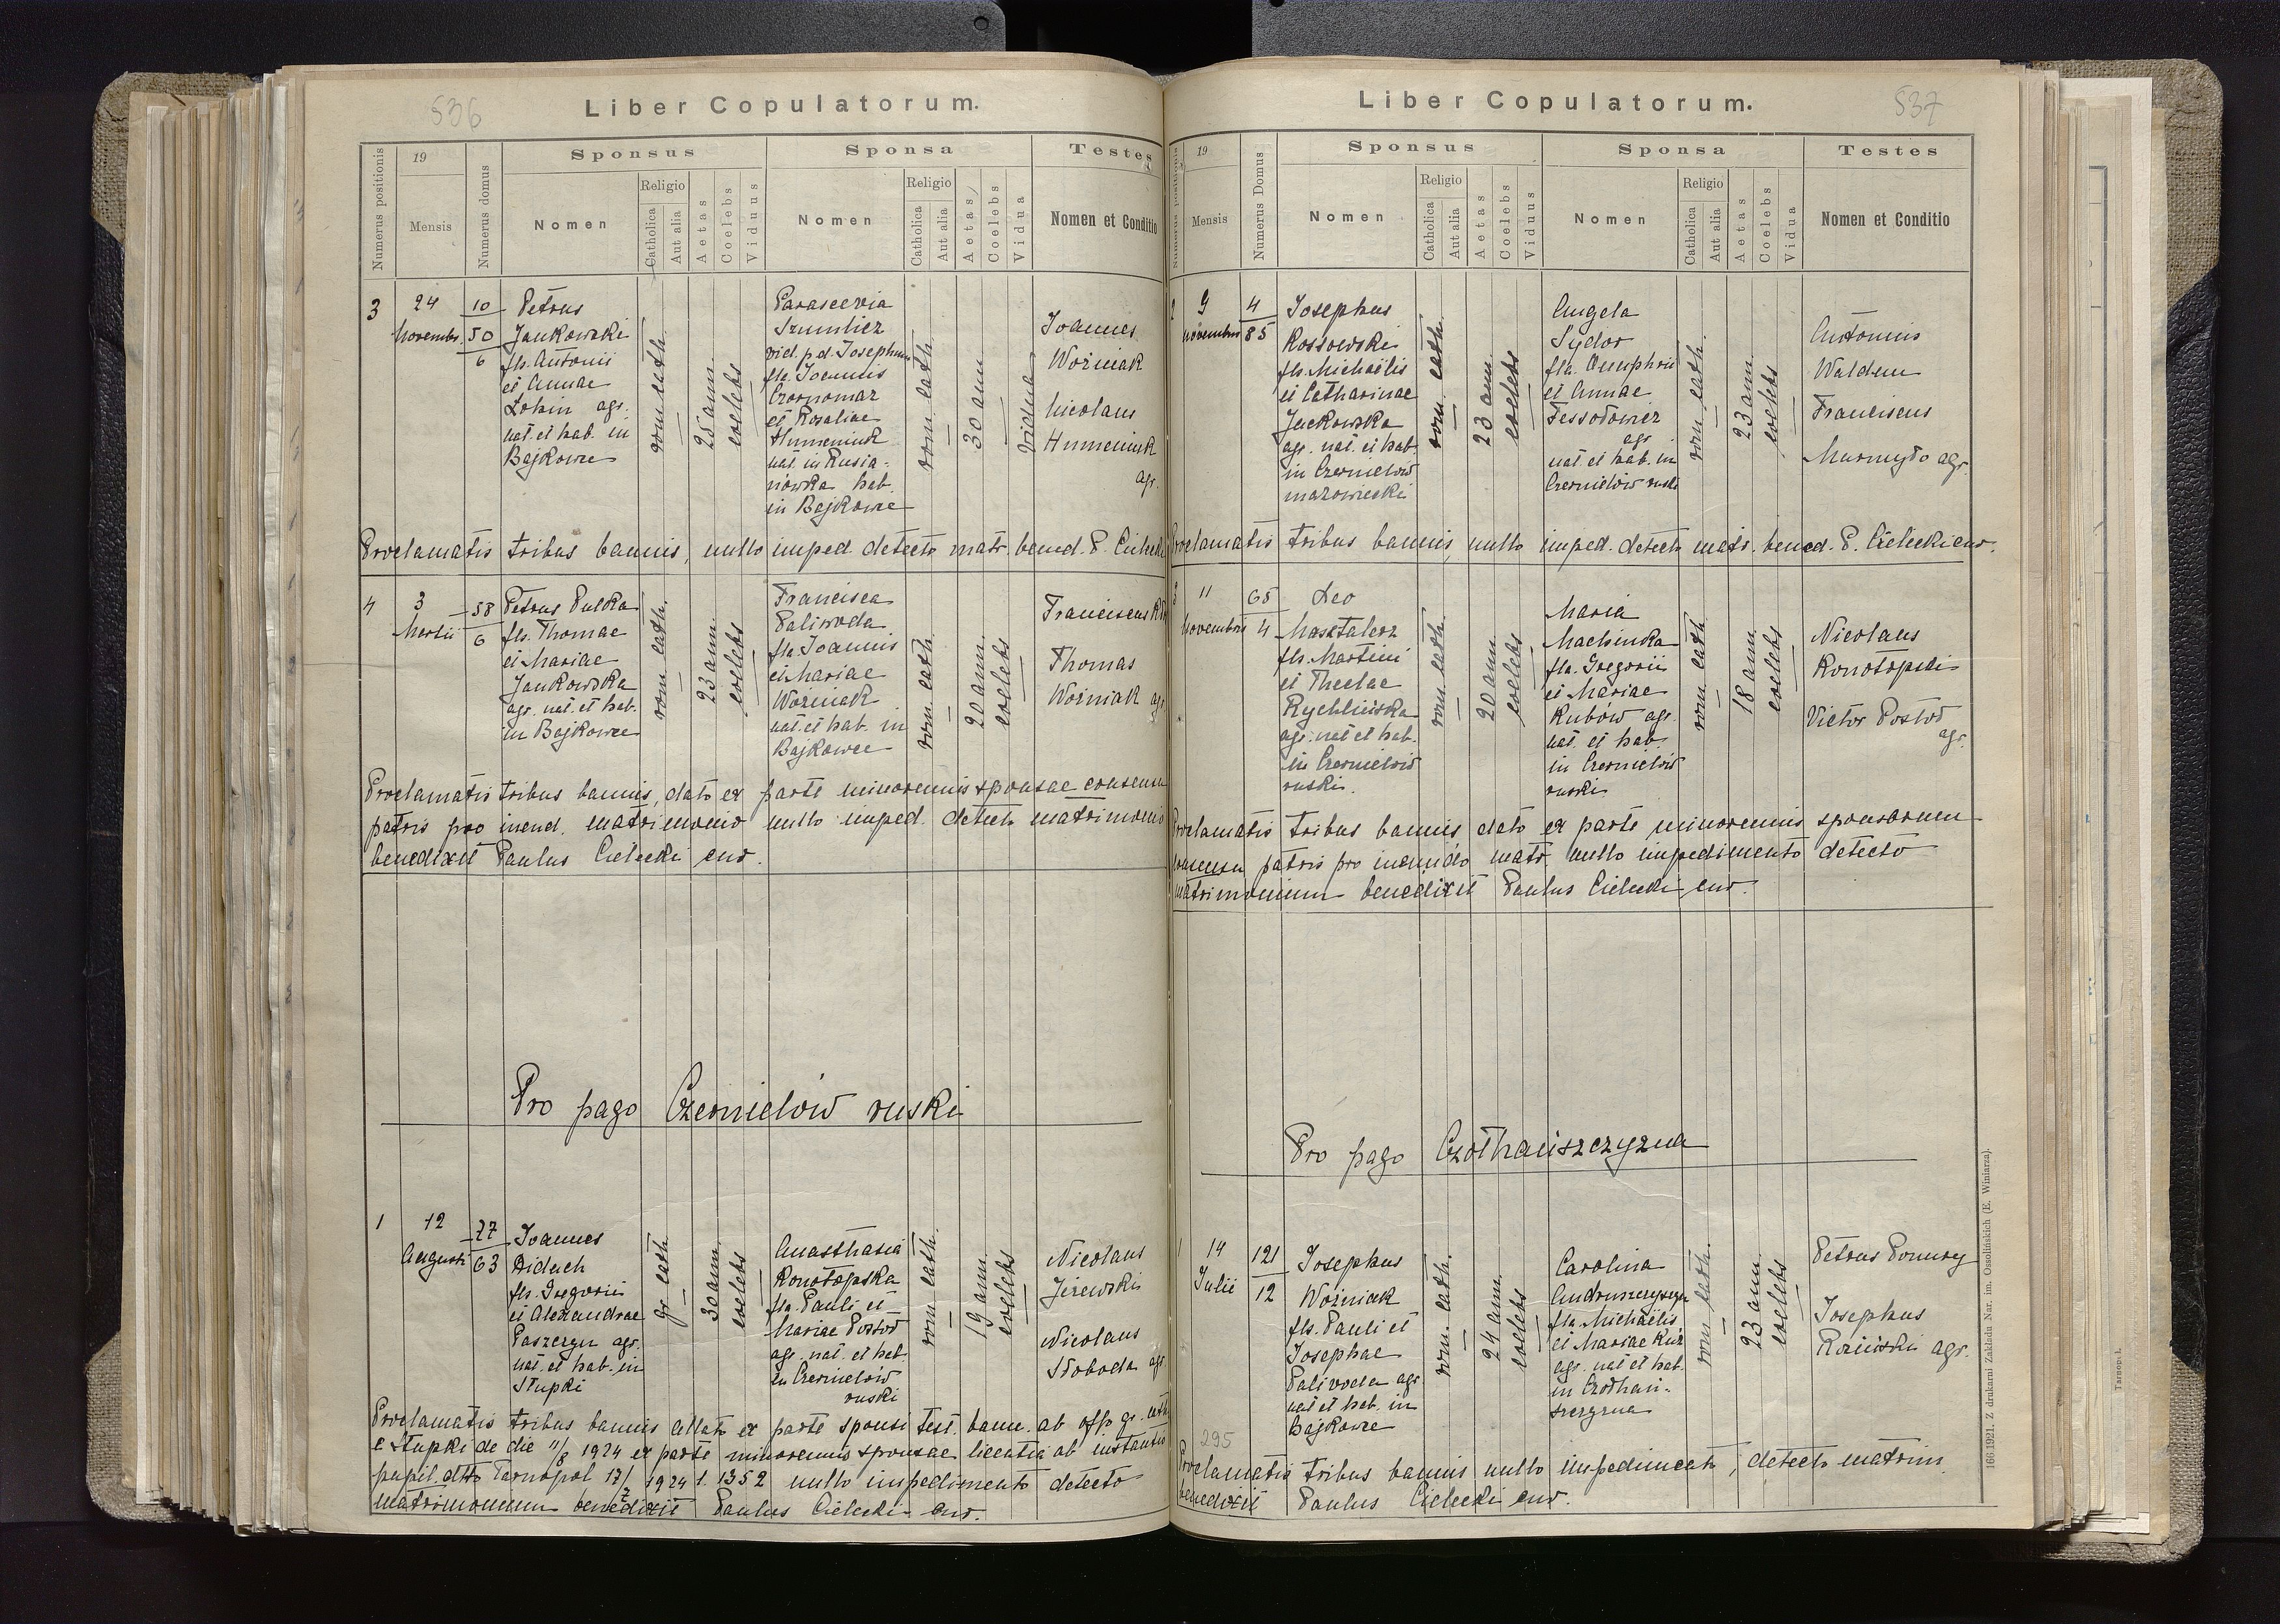 536
Liber Copulatorum.
Numerus positionis
19
Mensis
Numerus domus
Sponsus
Nomen
Religio
Catholica
Aut alia
Aetas
Coelebs
Viduus
Sponsa
Nomen
Religio
Catholica
Aut alia
Aetas
Coelebs
Vidua
Testes
Nomen et Conditio
3
24
Novembr.
10
50
6
Petrus
Jankowski
fls. Antonii
et Annae
Łohin agr.
nat. et hab. in
Bajkowce
rom. cath.
25 ann.
coelebs
Parascevia
Szumlicz
vid. p. d. Josephum
fla. Joannis
Czornomaz
et Rosaliae
Humeniuk
nat. in Rusia-
nówka hab.
in Bajkowce
rom. cath.
30 ann
vidua
Joannes
Woźniak
Nicolaus
Humeniuk
agr.
Proclamatis tribus bannis, nullo imped. detecto matr. bened. P. Cielecki
4
3
Martii
58
6
Petrus Pulka
fls. Thomae
et Mariae
Jankowska
agr. nat. et hab.
in Bajkowce
rom. cath.
23 ann.
coelebs
Francisca
Paliwoda
fla. Joannis
et Mariae
Woźniak
nat. et hab. in
Bajkowce
rom. cath.
20 ann.
coelebs
Franciscus
Thomas
Woźniak agr.
Proclamatis tribus bannis, dato ex parte minorennis sponsae consensu
patris pro ineund. matrimonio nullo imped. detecto matrimonio
benedixit Paulus Cielecki cur.
Pro pago Czernielów ruski
1
12
Augusti
77
63
Joannes
Diduch
fls. Gregorii
et Alexandrae
Paszczyn agr.
nat. et hab. in
Stupki
gr. cath.
30 ann.
coelebs
Anasthasia
Konotopska
fla. Pauli et
Mariae Postoł
agr. nat. et hab.
in Czernielów
ruski
rom. cath.
19 ann.
coelebs
Nicolaus
Jeżewski
Nicolaus
Słoboda agr.
Proclamatis tribus bannis allato ex parte sponsi test. bann. ab offo. gr. cath.
e Stupki de die 11/8 1924 ex parte minorennis sponsae licentia ab instantia
pupil. dtto Tarnopol 17/7 1924 l. 1352 nullo impedimento detecto
matrimonium benedixit Paulus Cielecki cur.
537
Liber Copulatorum.
Numerus positionis
19
Mensis
Numerus Domus
Sponsus
Nomen
Religio
Catholica
Aut alia
Aetas
Coelebs
Viduus
Sponsa
Nomen
Religio
Catholica
Aut alia
Aetas
Coelebs
Vidua
Testes
Nomen et Conditio
2
9
Novembris
4
85
Josephus
Kossowski
fls. Michaëlis
et Catharinae
Jackowska
agr. nat. et hab.
in Czernielów
mazowiecki
rom. cath.
23 ann.
coelebs
Angela
Sydor
fla. Onuphrii
et Annae
Tessorowicz
agr.
nat. et hab. in
Czernielów ruski
rom. cath.
23 ann.
coelebs
Antonius
Waldun
Franciscus
agr.
Proclamatis tribus bannis, nullo imped. detecto matr. bened. P. Cielecki cur.
3
11
Novembris
65
4
Leo
Masztalerz
fls. Martini
et Theclae
Rychlińska
agr. nat. et hab.
in Czernielów
ruski.
rom. cath.
20 ann.
coelebs
Maria
Machinka
fla. Gregorii
et Mariae
Kubów agr.
nat. et hab.
in Czernielów
ruski
rom. cath.
18 ann.
coelebs
Nicolaus
Konotopski
Victor Postoł
agr.
Proclamatis tribus bannis dato ex parte minorennis sponsorum
consensu patris pro ineundo matr. nullo impedimento detecto
matrimonium benedixit Paulus Cielecki cur.
Pro pago Czołhańszczyzna
1
14
Julii
121
12
Josephus
Woźniak
fls. Pauli et
Josephae
Palivoda agr.
nat. et hab. in
Bajkowce
rom. cath.
24 ann.
coelebs
Carolina
Andruszczyszyn
fla. Michaëlis
et Mariae Kuź
agr. nat. et hab.
in Czołhań-
szczyzna
rom. cath.
23 ann.
coelebs
Petrus Ponury
Josephus
Roziński agr.
295
Proclamatis tribus bannis nullo impedimento, detecto matrim.
benedixit Paulus Cielecki cur.
160.1921. Z drukarni Zakładu Nar. im. Ossolińskich (E. Winiarza).